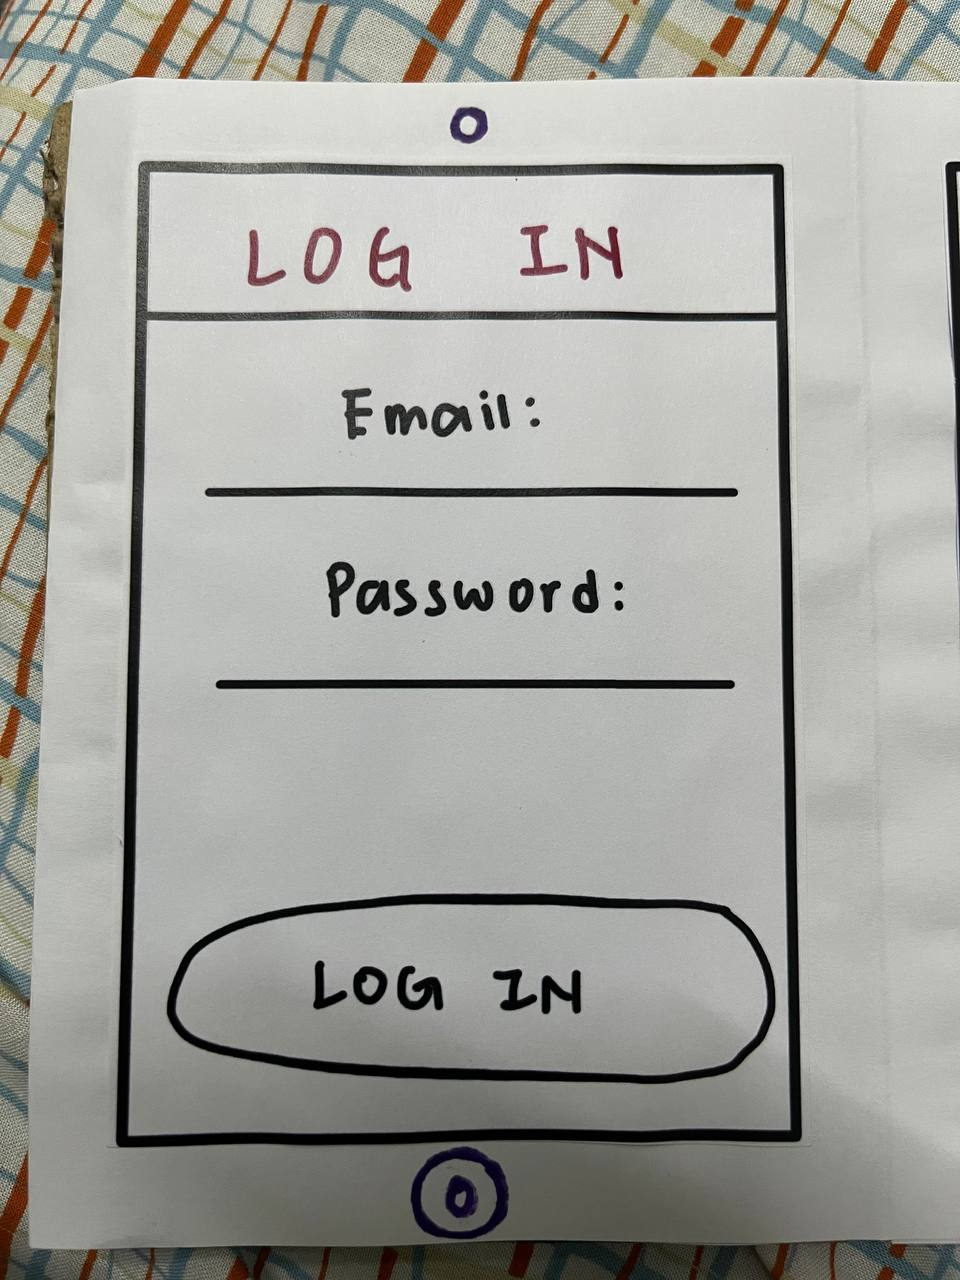 LOG IN
Email:
Password:
LOG IN